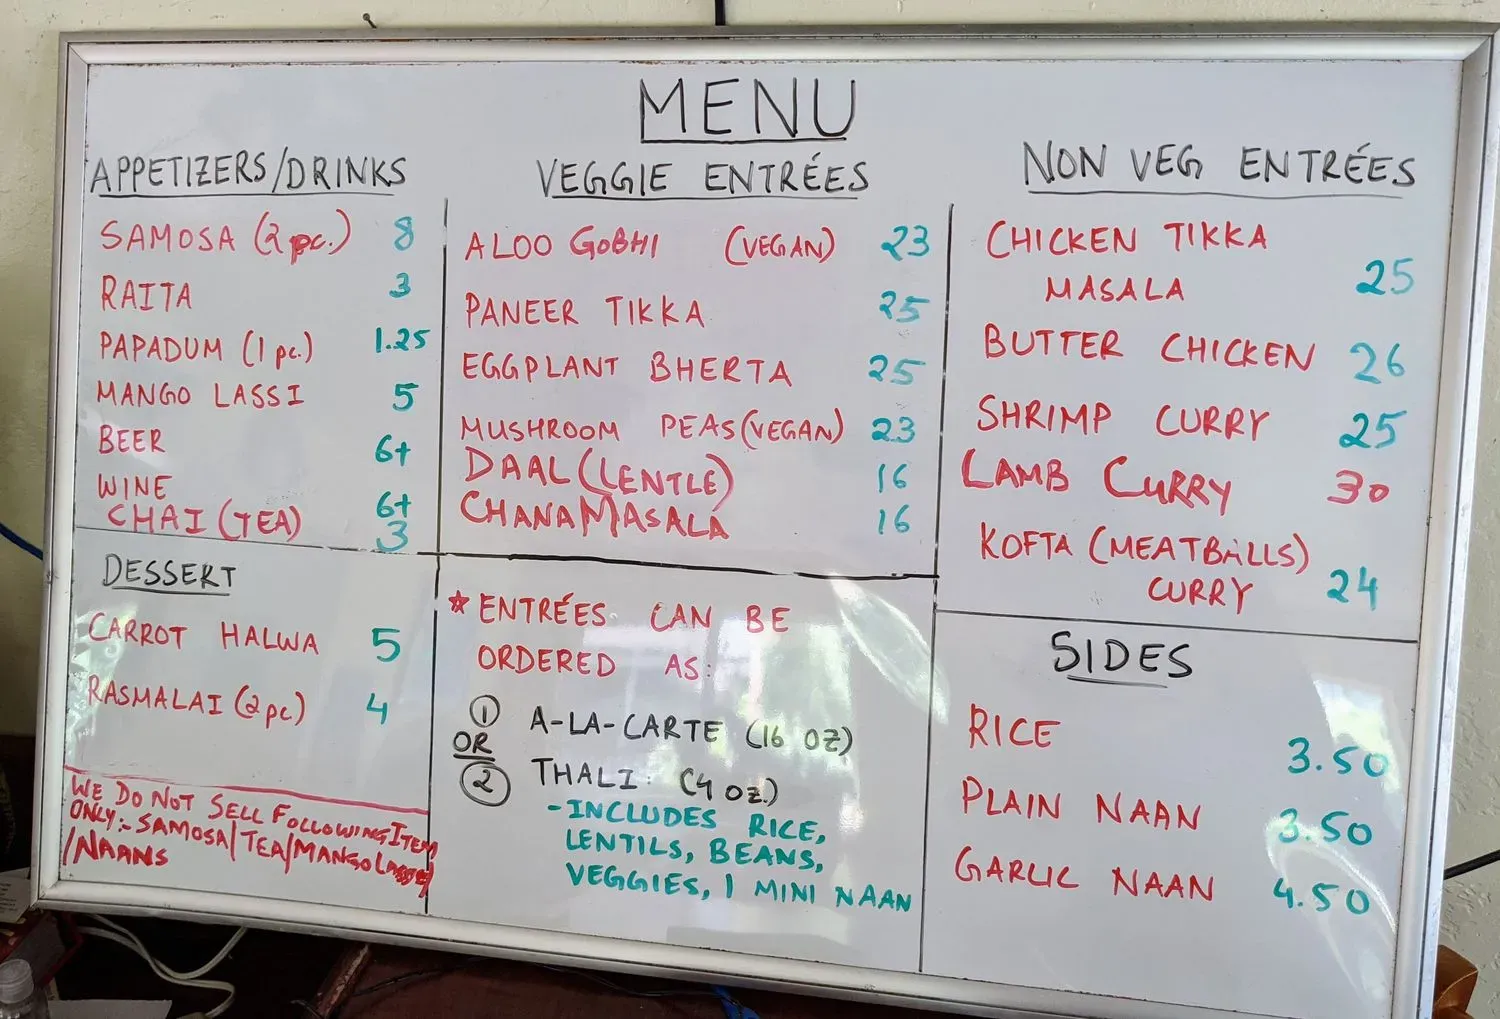 MENU
APPETIZERS/DRINKS
SAMOSA (2 pc.) 8
RAITA 3
PAPADUM (1 pc.) 1.25
MANGO LASSI 5
BEER 6+
WINE 6+
CHAI (TEA) 3
DESSERT
CARROT HALWA 5
RASMALAI (2 pc) 4
WE DO NOT SELL FOLLOWING ITEM
ONLY:- SAMOSA/TEA/MANGO
/NAANS
VEGGIE ENTRÉES
ALOO GOBHI (VEGAN) 23
PANEER TIKKA 25
EGGPLANT BHERTA 25
MUSHROOM PEAS (VEGAN) 23
DAAL (LENTLE) 16
CHANA MASALA 16
* ENTRÉES CAN BE
ORDERED AS:
1 A-LA-CARTE (16 OZ)
OR
2 THALI: (4 OZ.)
- INCLUDES RICE,
LENTILS, BEANS,
VEGGIES, 1 MINI NAAN
NON VEG ENTRÉES
CHICKEN TIKKA
MASALA 25
BUTTER CHICKEN 26
SHRIMP CURRY 25
LAMB CURRY 30
KOFTA (MEATBALLS)
CURRY 24
SIDES
RICE 3.50
PLAIN NAAN 3.50
GARLIC NAAN 4.50